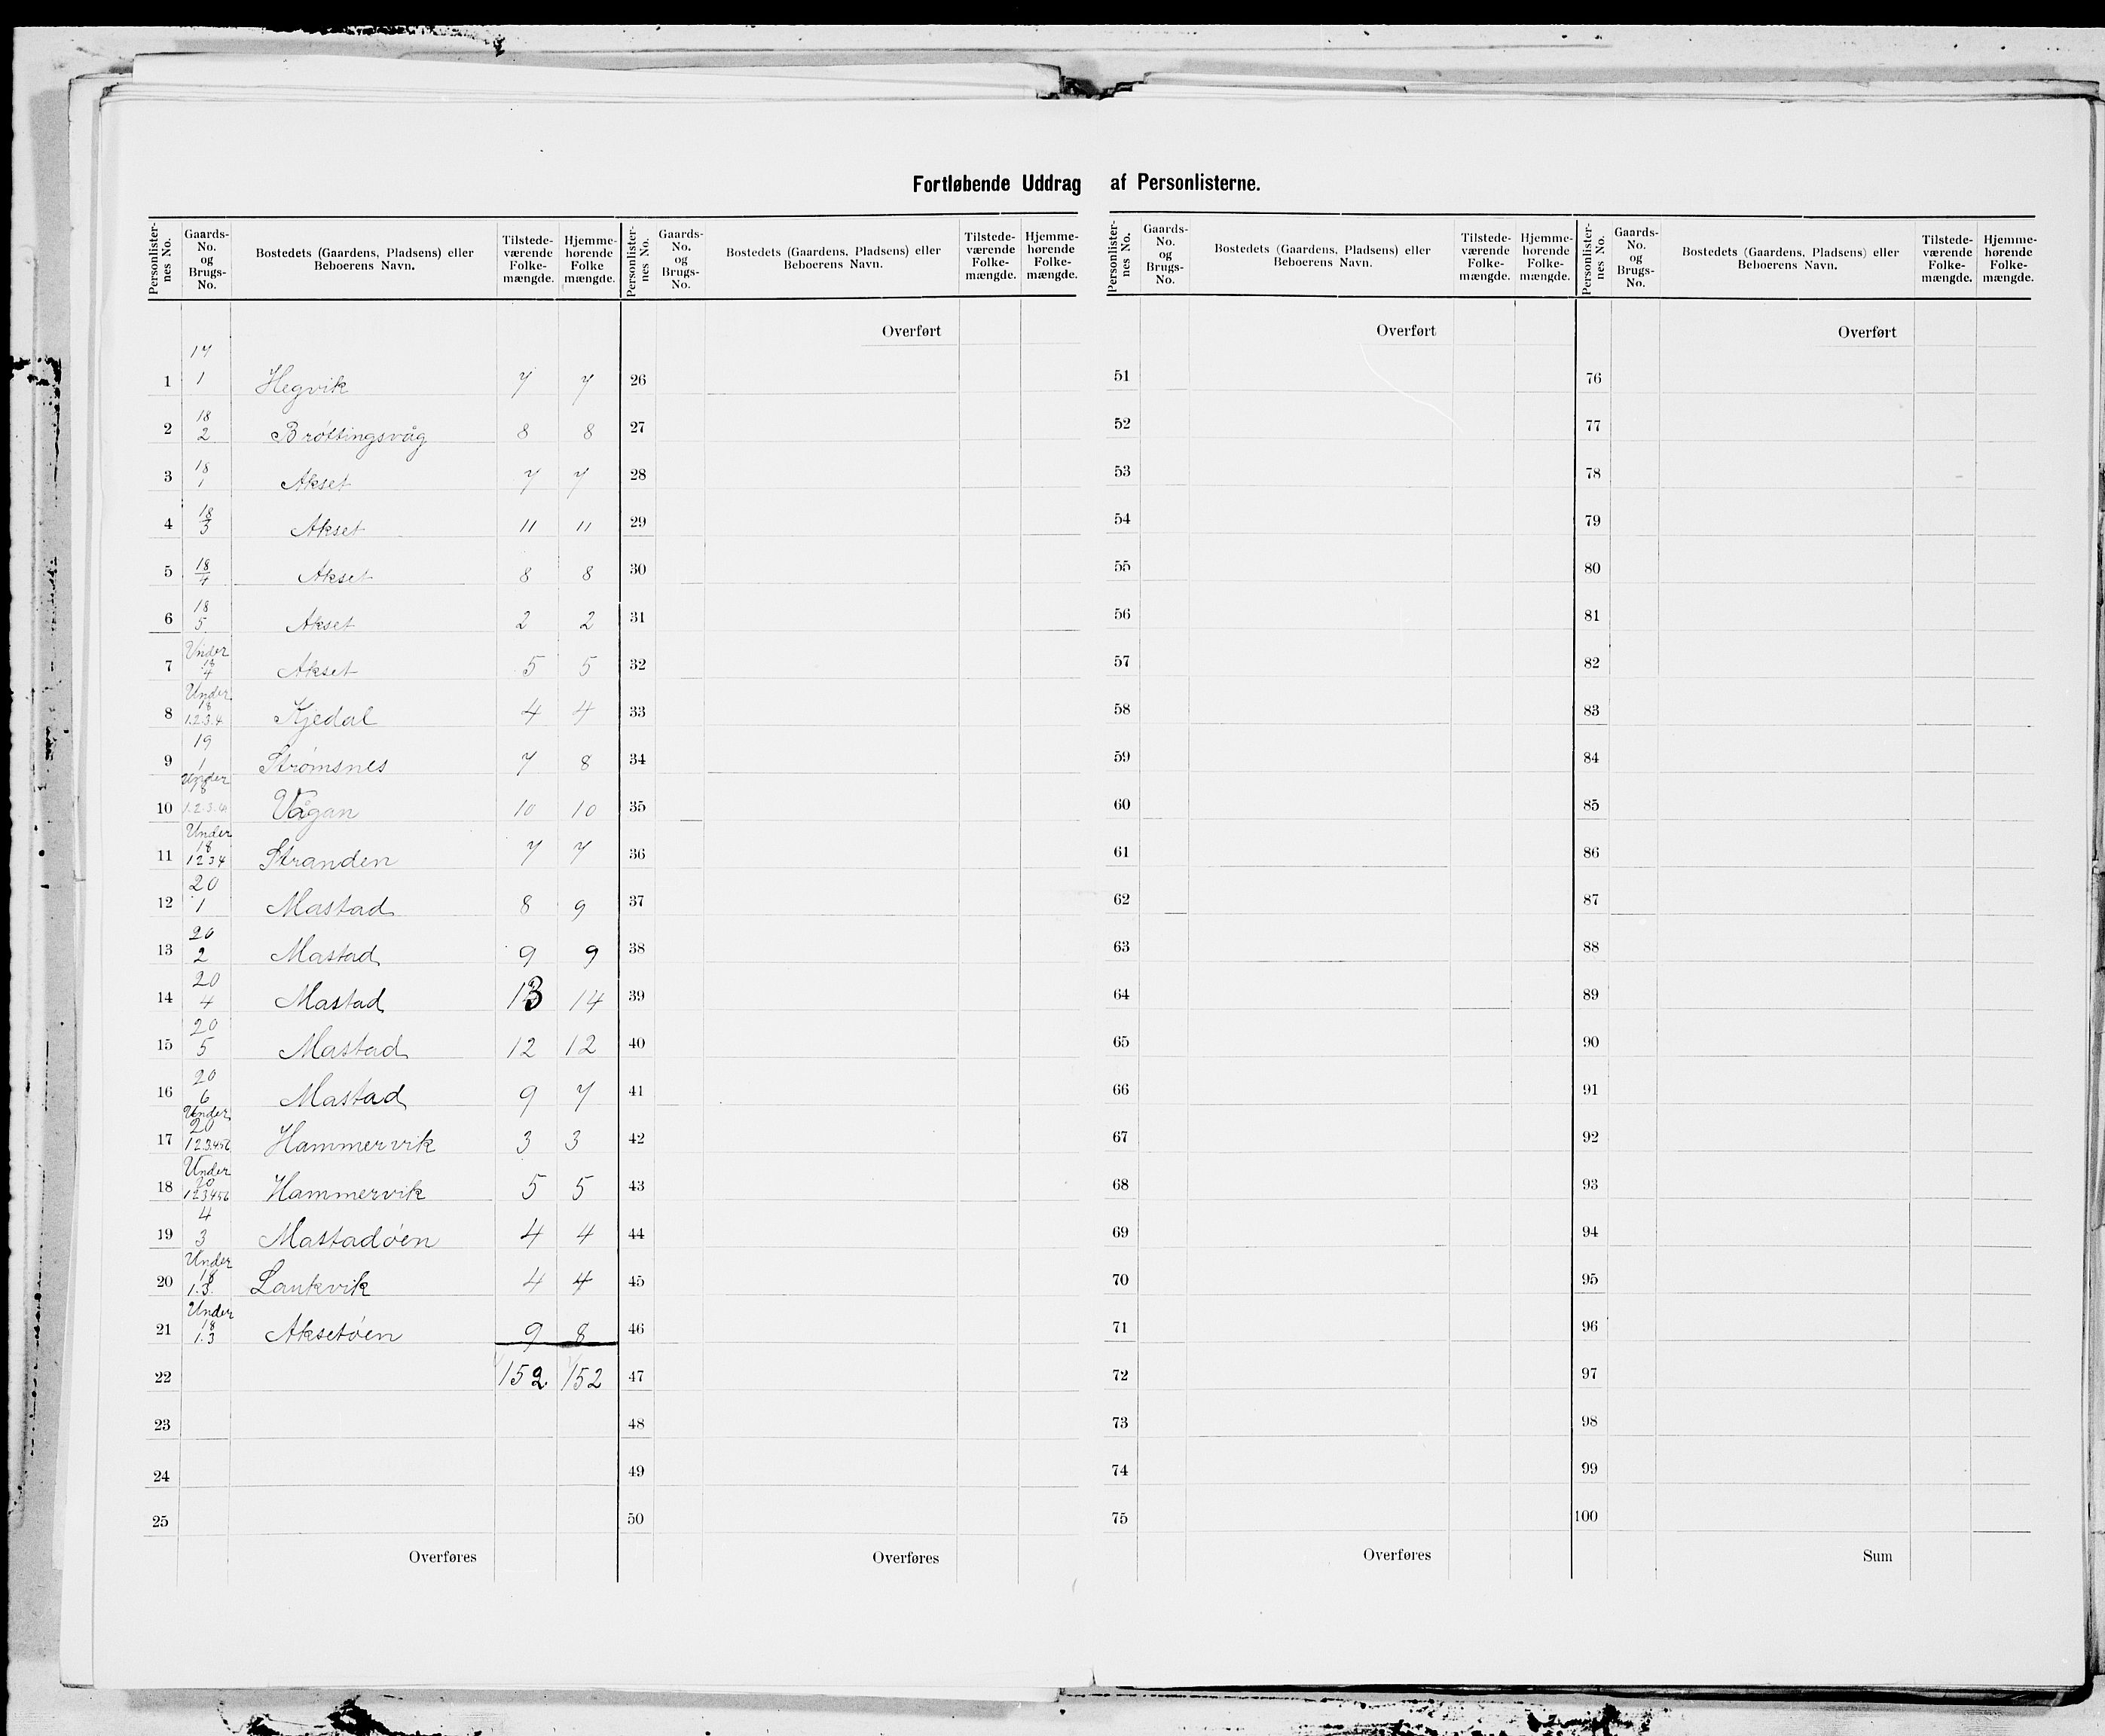 Fortløbende Uddrag af Personlisterne.
Personlister-nes No. Gaards-No. og Brugs-No. Bostedets (Gaardens, Pladsens) eller Beboerens Navn. Tilstede-værende Folke-mængde. Hjemme-hørende Folke mængde.
Personlister-nes No. Gaards-No. og Brugs-No. Bostedets (Gaardens, Pladsens) eller Beboerens Navn. Tilstede-værende Folke-mængde. Hjemme-hørende Folke-mængde.
Personlister-nes No. Gaards-No. og Brugs-No. Bostedets (Gaardens, Pladsens) eller Beboerens Navn. Tilstede-værende Folke-mængde. Hjemme-hørende Folke-mængde.
Personlister-nes No. Gaards-No. og Brugs-No. Bostedets (Gaardens, Pladsens) eller Beboerens Navn. Tilstede-værende Folke-mængde. Hjemme-hørende Folke-mængde.
Overført Overført Overført
1 17 1 Hegvik 7 7 26 51 76
2 18 2 Brøttingsvåg 8 8 27 52 77
3 18 1 Akset 7 7 28 53 78
4 18 3 Akset 11 11 29 54 79
5 18 4 Akset 8 8 30 55 80
6 18 5 Akset 2 2 31 56 81
7 Under 18 4 Akset 5 5 32 57 82
8 Under 18 1.2.3.4 Kjedal 4 4 33 58 83
9 19 1 Strømsnes 7 8 34 59 84
10 Under 18 1.2.3.4 Vågan 10 10 35 60 85
11 Under 18 1234 Stranden 7 7 36 61 86
12 20 1 Mastad 8 9 37 62 87
13 20 2 Mastad 9 9 38 63 88
14 20 4 Mastad 13 14 39 64 89
15 20 5 Mastad 12 12 40 65 90
16 20 6 Mastad 9 7 41 66 91
17 Under 20 123456 Hammervik 3 3 42 67 92
18 Under 20 123456 Hammervik 5 5 43 68 93
19 4 3 Mastadøen 4 4 44 69 94
20 Under 18 1.3. Laukvik 4 4 45 70 95
21 Under 18 1.3 Aksetøen 9 8 46 71 96
22 152 152 47 72 97
23 48 73 98
24 49 74 99
25 50 75 100
Overføres Overføres Overføres Sum